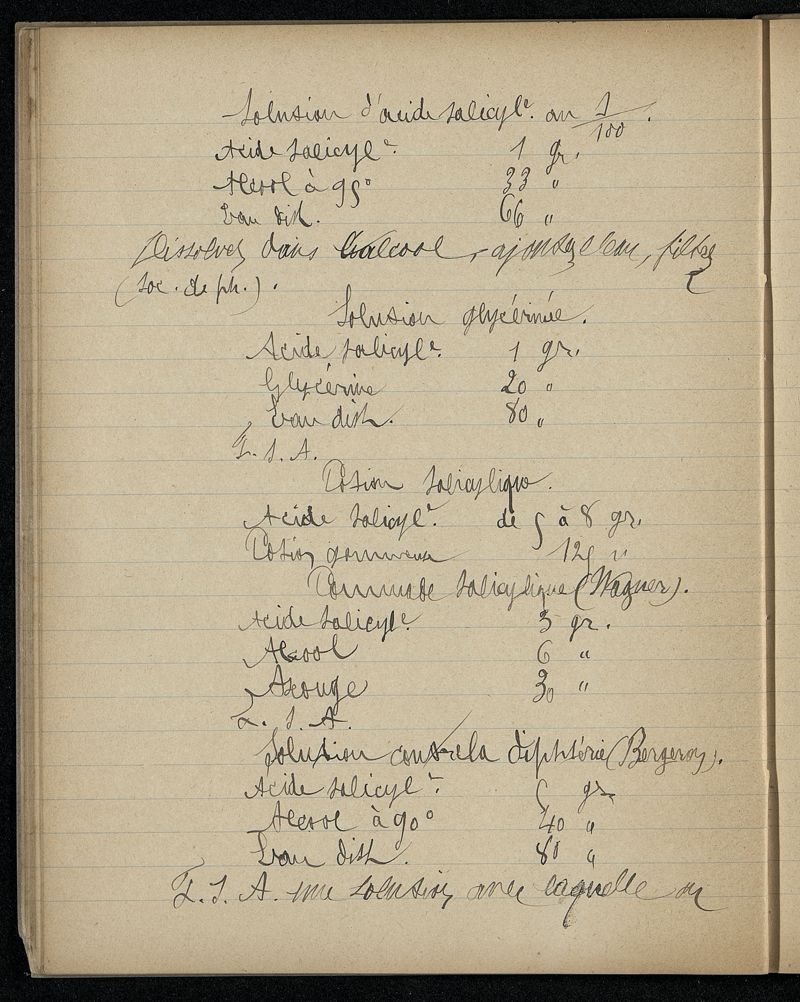 Solution d'acide salicyl<sup>e</sup>. au 1/100.
Acide salicyl<sup>e</sup>. 1 gr.
Alcool à 95° 33 "
Eau dist. 66 "
Dissolvez dans l'alcool, ajoutez l'eau, filtrez
(Soc. de ph.).
Solution glycérinée.
Acide salicyl<sup>e</sup>. 1 gr.
Glycérine 20 "
Eau dist. 80 "
F. S. A.
Potion salicylique.
Acide salicyl<sup>e</sup>. de 5 à 8 gr.
Potion gommeuse 125 "
Pommade salicylique (Wagner).
Acide salicyl<sup>e</sup>. 3 gr.
Alcool 6 "
Axonge 30 "
F. S. A.
Solution contre la diphtérie (Bergeron).
Acide salicyl<sup>e</sup>. 5 gr.
Alcool à 90° 40 "
Eau dist. 80 "
F. S. A. une solution avec laquelle on